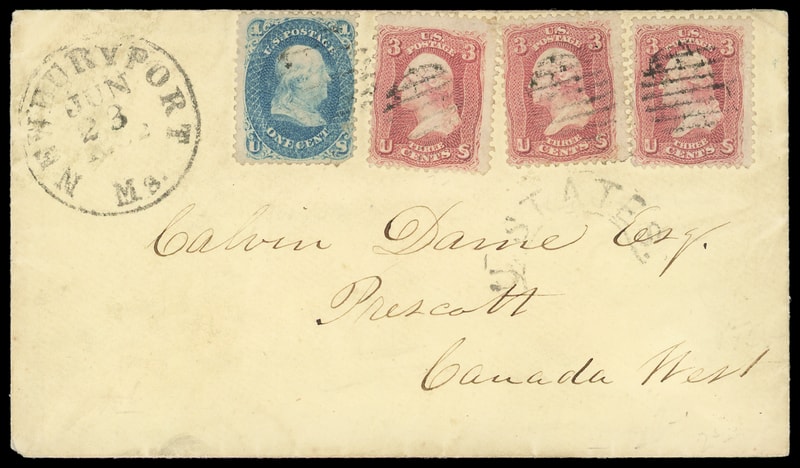 NEWBURYPORT
JUN
23
Ms.
1 1
U.S. POSTAGE
ONE CENT
U S
3 3
U.S.
POSTAGE
THREE
U CENTS S
3 3
U.S.
POSTAGE
THREE
U CENTS S
3 3
U.S.
POSTAGE
THREE
U CENTS S
U. STATES
Calvin Dame Esq.
Prescott
Canada West